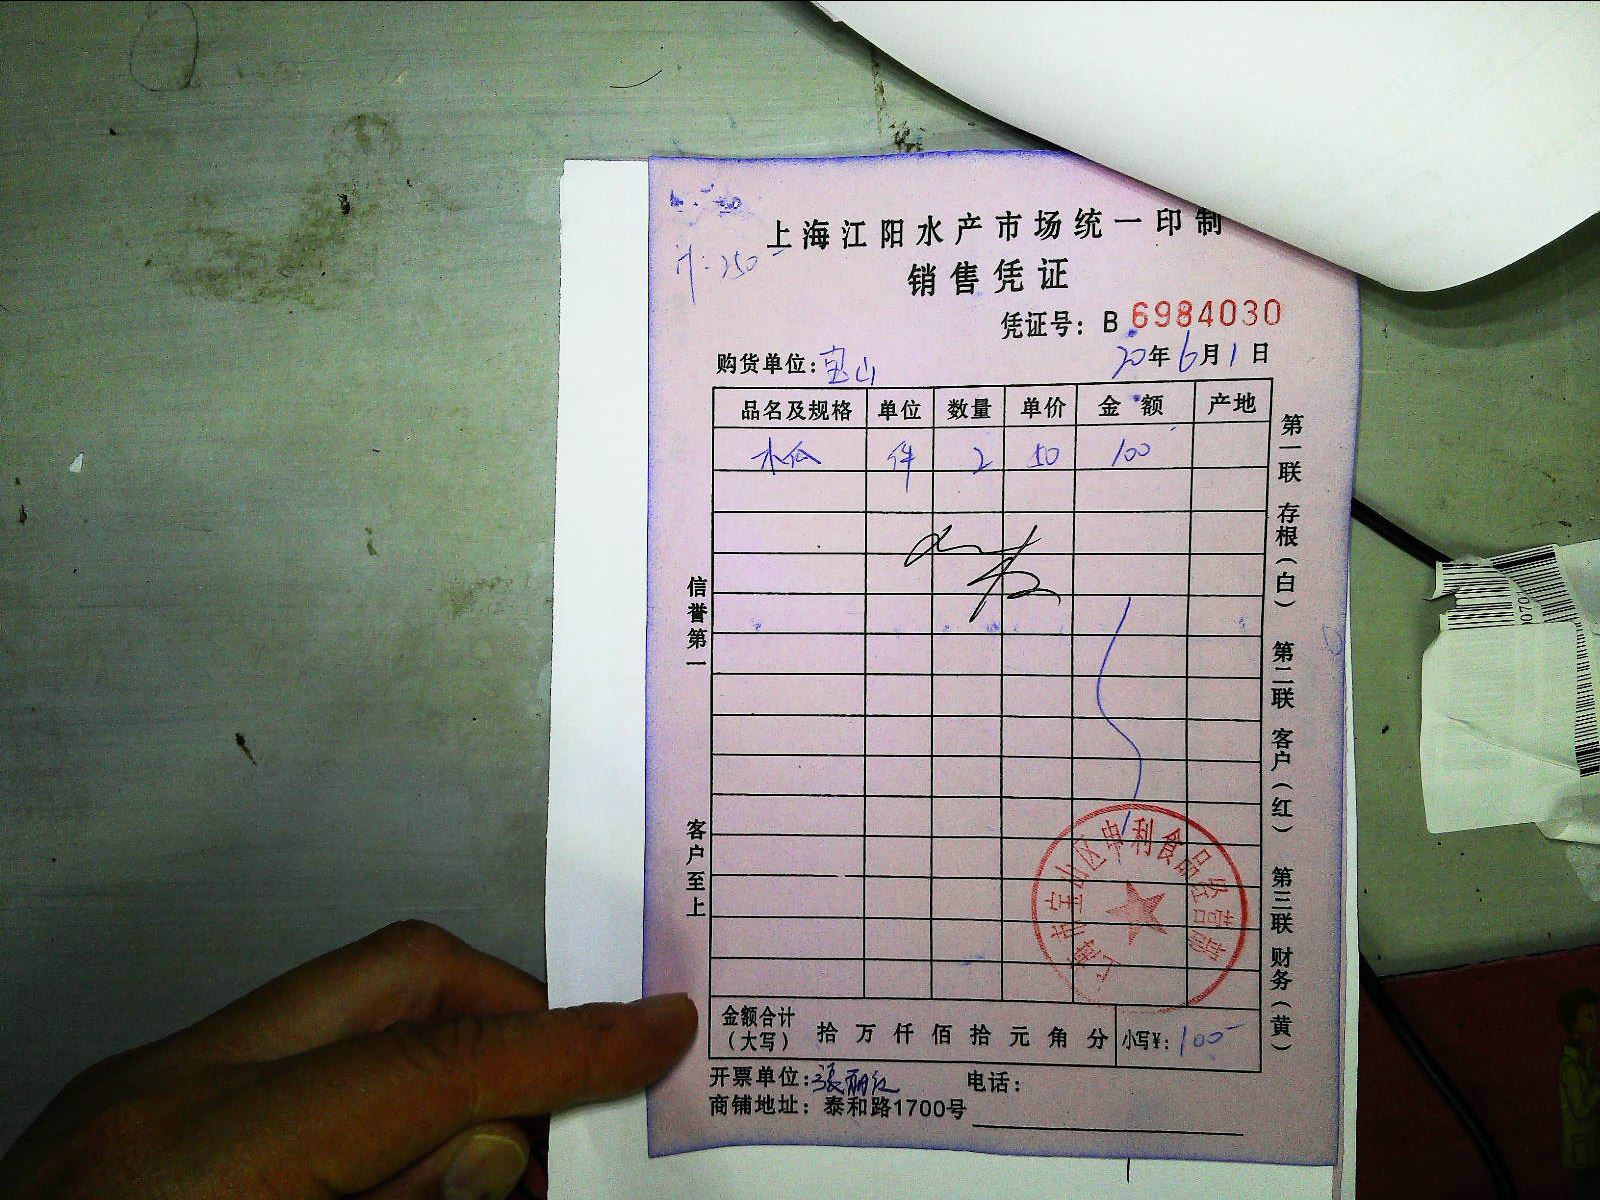 上海江阳水产市场统一印制
销售凭证
凭证号：B 6984030
购货单位：宝山 20年6月1日
品名及规格 单位 数量 单价 金额 产地
木瓜 件 2 50 100
信誉第一
客户至上
第一联 存根（白） 第二联 客户（红） 第三联 财务（黄）
上海市宝山区申利食品经营部
金额合计（大写） 拾 万 仟 佰 拾 元 角 分 小写¥：100
开票单位：张丽红 电话：
商铺地址：泰和路1700号